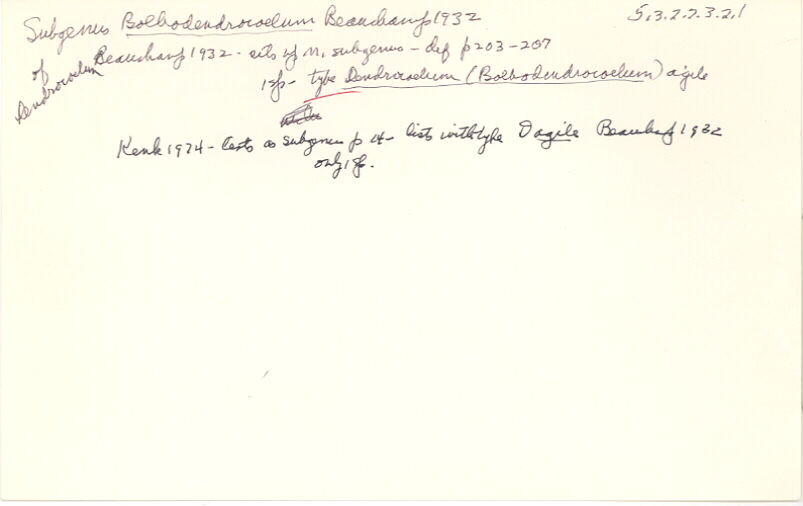 Subgenus Bolbodendrocoelum Beauchamp 1932 5.3.2.2.3.2.1
of Dendrocoelum
Beauchamp 1932 - as n. subgenus - def p 203-207
1 sp - type Dendrocoelum (Bolbodendrocoelum) agile
Kenk 1974 - lists as subgenus p 4 - lists with type D agile Beauchamp 1932
only 1 sp.